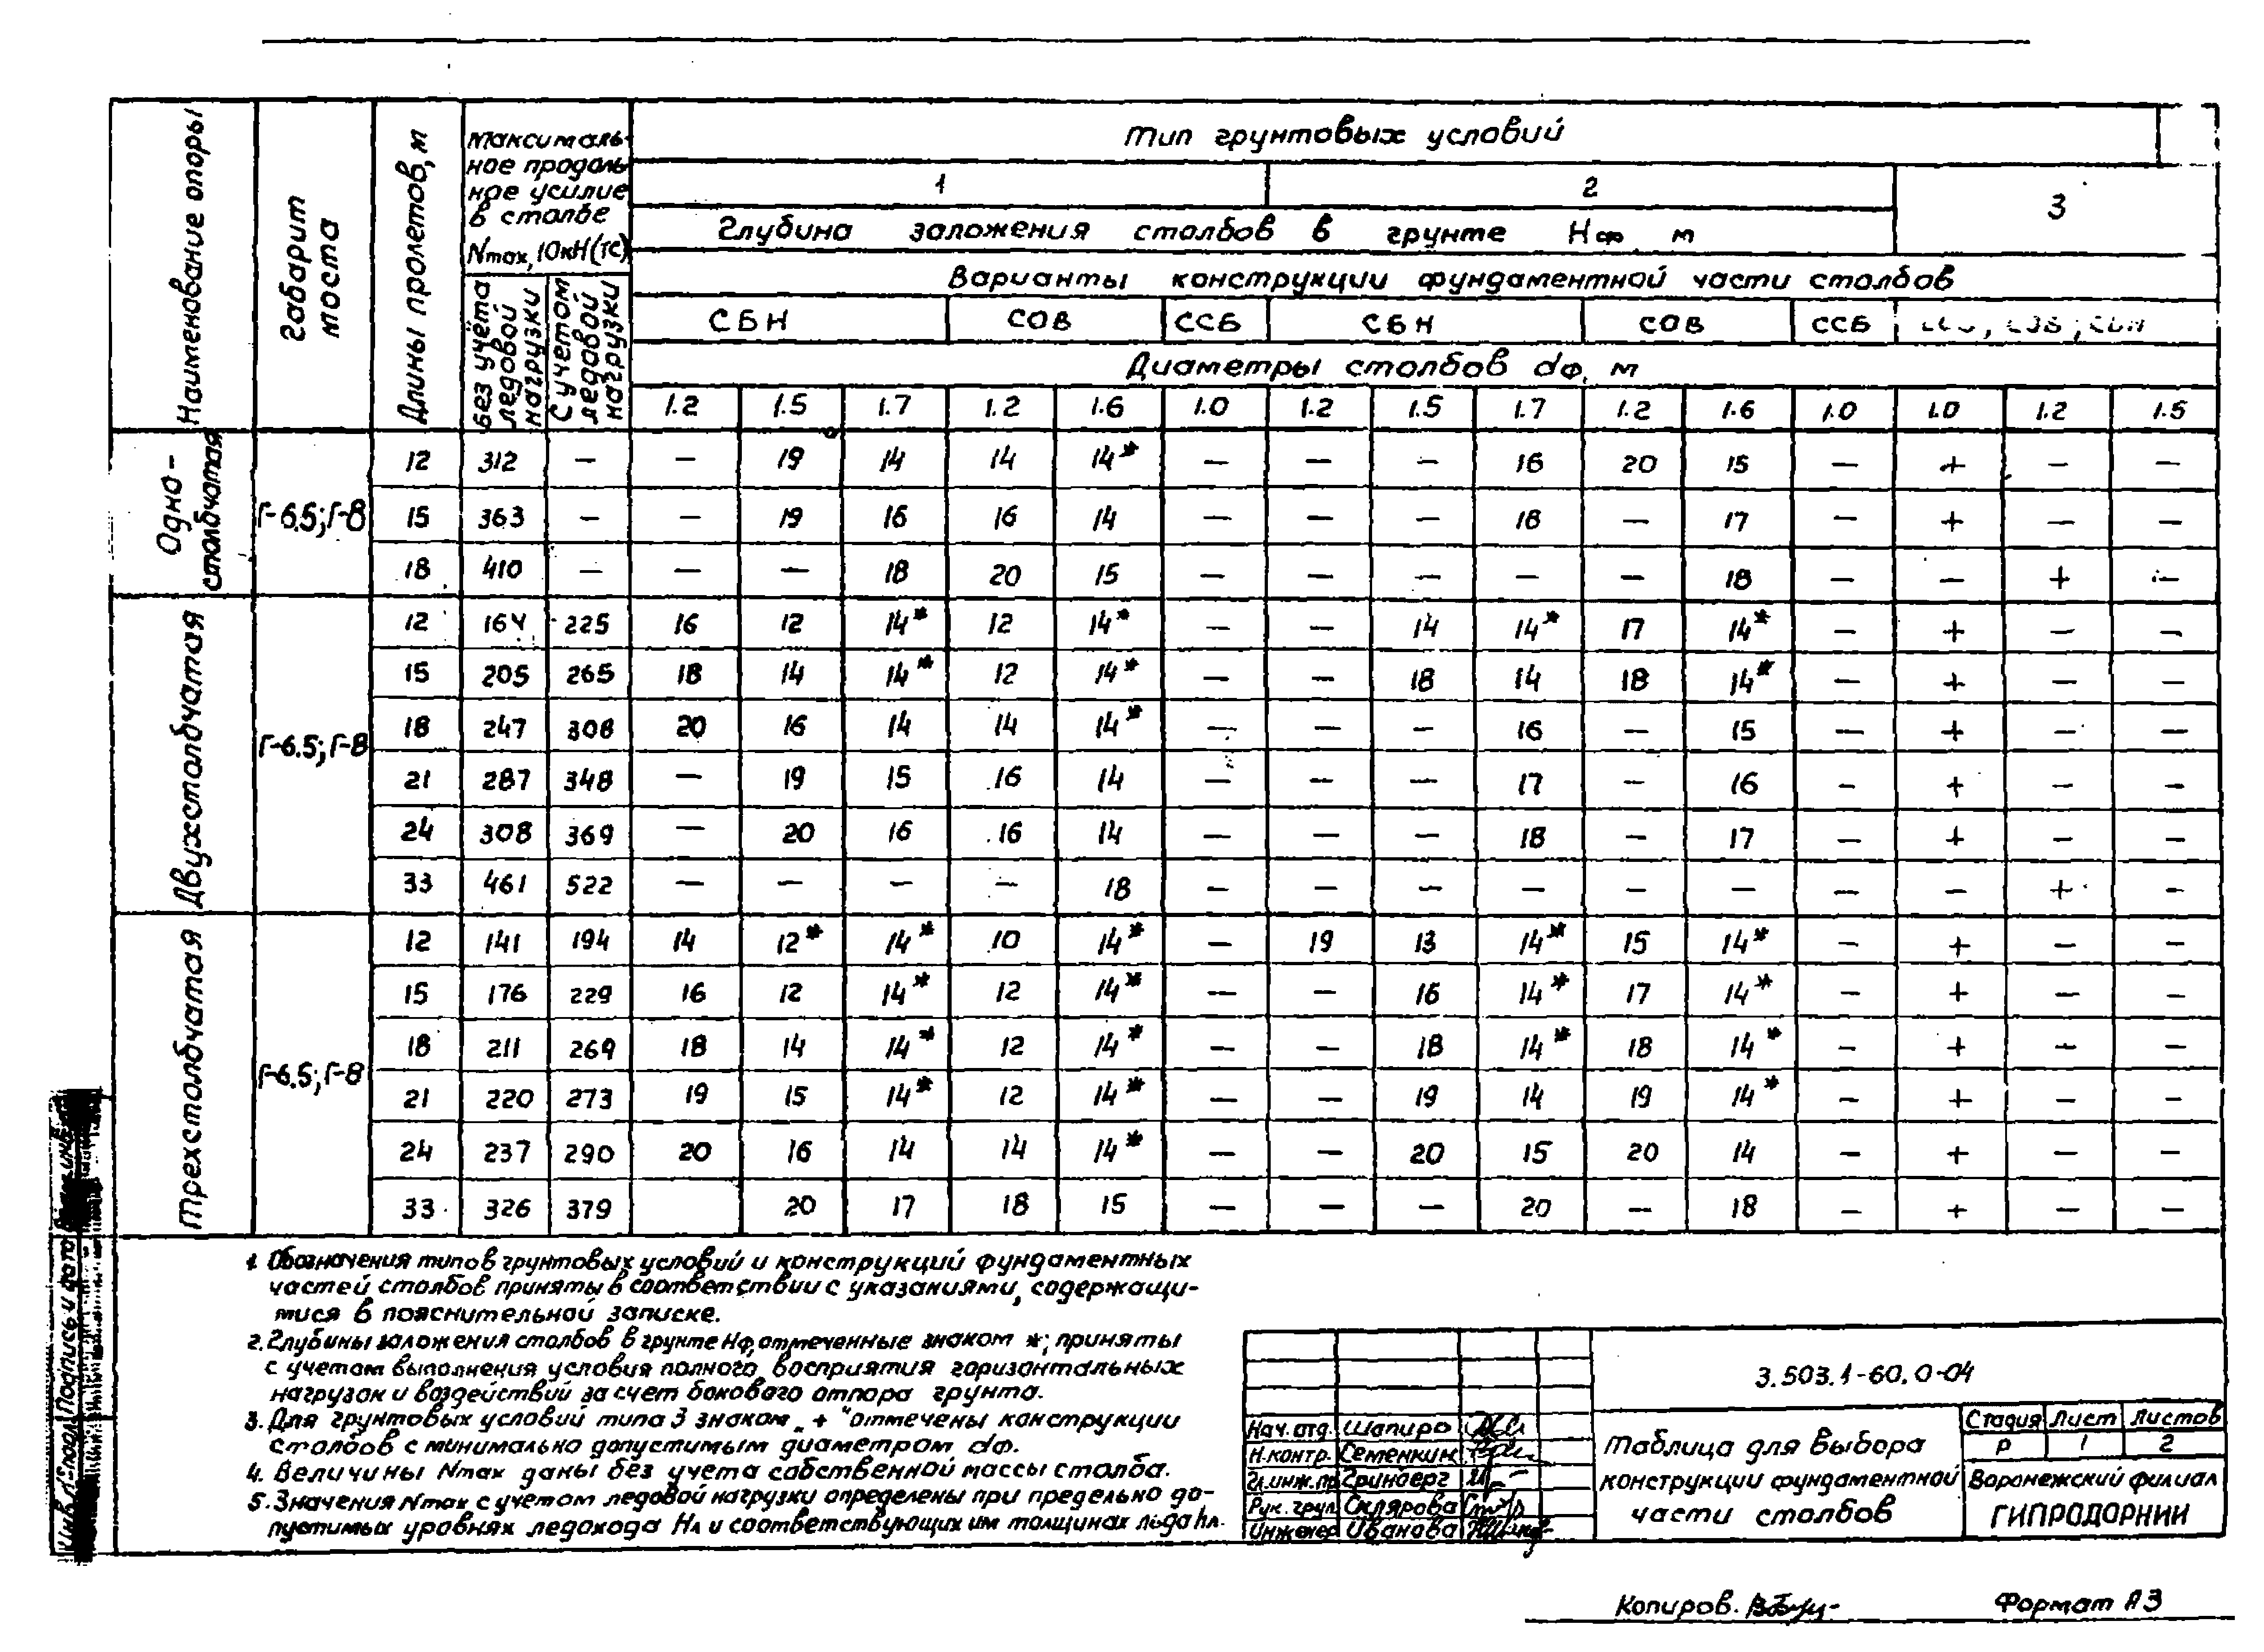 Наименование опоры
Габарит моста
Длины пролетов, м
Максималь-
ное продоль-
ное усилие
в столбе
Nmax, 10кН(ТС)
без учёта ледовой нагрузки
С учетом ледовой нагрузки
Тип грунтовых условий
1 2 3
Глубина заложения столбов в грунте Нф, м
Варианты конструкции фундаментной части столбов
СБН СОВ ССБ СБН СОВ ССБ
Диаметры столбов dф, м
1.2 1.5 1.7 1.2 1.6 1.0 1.2 1.5 1.7 1.2 1.6 1.0 1.0 1.2 1.5
Одно-
столбчатая
Г-6.5; Г-8
12 312 — — 19 14 14 14* — — — 16 20 15 — + — —
15 363 — — 19 16 16 14 — — — 18 — 17 — + — —
18 410 — — — 18 20 15 — — — — — 18 — — + —
Двухстолбчатая
Г-6.5; Г-8
12 164 225 16 12 14* 12 14* — — 14 14* 17 14* — + — —
15 205 265 18 14 14* 12 14* — — 18 14 18 14* — + — —
18 247 308 20 16 14 14 14* — — — 16 — 15 — + — —
21 287 348 — 19 15 16 14 — — — 17 — 16 — + — —
24 308 369 — 20 16 16 14 — — — 18 — 17 — + — —
33 461 522 — — — — 18 — — — — — — — — + —
Трехстолбчатая
Г-6.5; Г-8
12 141 194 14 12* 14* 10 14* — 19 13 14* 15 14* — + — —
15 176 229 16 12 14* 12 14* — — 16 14* 17 14* — + — —
18 211 269 18 14 14* 12 14* — — 18 14* 18 14* — + — —
21 220 273 19 15 14* 12 14* — — 19 14 19 14* — + — —
24 237 290 20 16 14 14 14* — — 20 15 20 14 — + — —
33 326 379 20 17 18 15 — — — 20 — 18 — + — —
1. Обозначения типов грунтовых условий и конструкций фундаментных
частей столбов приняты в соответствии с указаниями, содержащи-
мися в пояснительной записке.
2. Глубины заложения столбов в грунте Нф, отмеченные знаком *; приняты
с учетом выполнения условия полного восприятия горизонтальных
нагрузок и воздействий за счет бокового отпора грунта.
3. Для грунтовых условий типа 3 знаком „+" отмечены конструкции
столбов с минимально допустимым диаметром dф.
4. Величины Nmax даны без учета собственной массы столба.
5. Значения Nmax с учетом ледовой нагрузки определены при предельно до-
пустимых уровнях ледохода Нл и соответствующих им толщинах льда hл.
Нач. отд. Шапиро
Н.контр. Семенкин
Гл.инж.пр. Гринберг
Рук. груп. Склярова
Инженер Иванова
3.503.1-60.0-04
Таблица для выбора
конструкции фундаментной
части столбов
Стадия Лист Листов
Р 1 2
Воронежский филиал
ГИПРОДОРНИИ
Инв.№подл. Подпись и дата
Копиров.
Формат А3